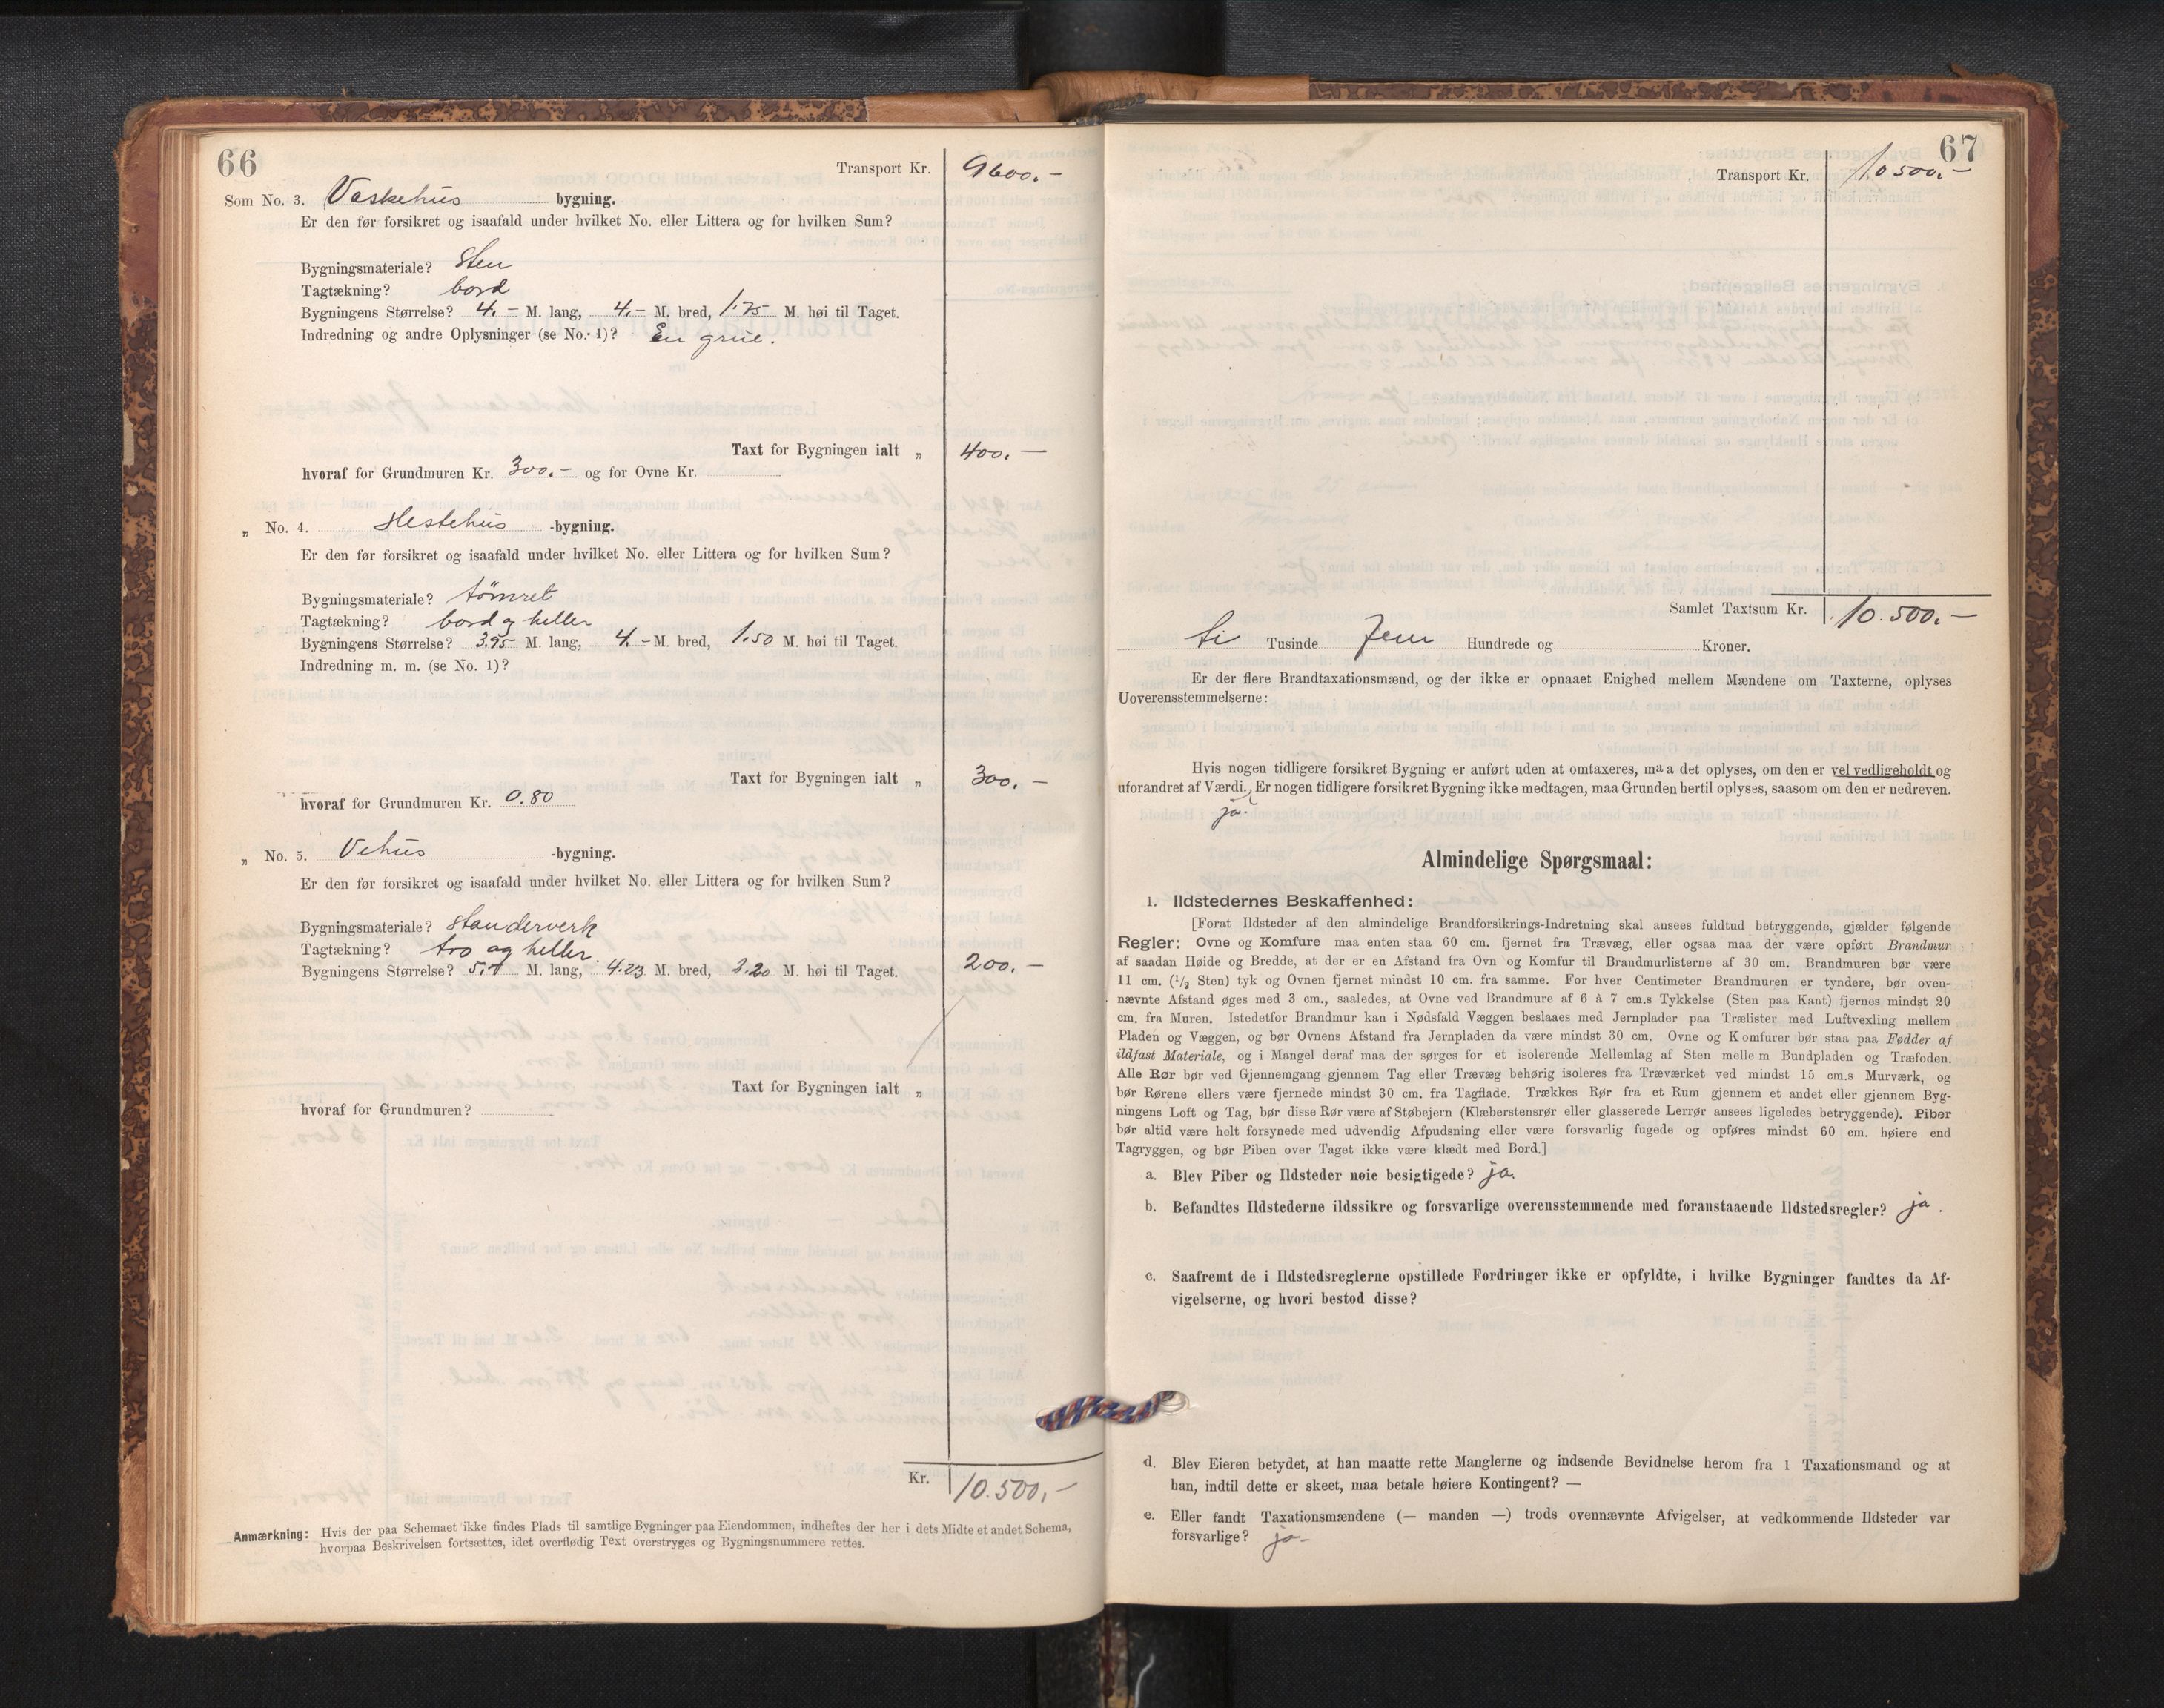 66
Transport Kr. 9600.-
Som No. 3. Vaskehus bygning.
Er den før forsikret og isaafald under hvilket No. eller Littera og for hvilken Sum?
Bygningsmateriale? Sten
Tagtækning? bord
Bygningens Størrelse? 4.- M. lang, 4.- M. bred, 1.75 M. høi til Taget.
Indredning og andre Oplysninger (se No. 1)? En grue.
Taxt for Bygningen ialt „ 400.-
hvoraf for Grundmuren Kr. 300.- og for Ovne Kr.
„ No. 4. Hestehus -bygning.
Er den før forsikret og isaafald under hvilket No. eller Littera og for hvilken Sum?
Bygningsmateriale? tømret
Tagtækning? bord og heller
Bygningens Størrelse? 3.95 M. lang, 4.- M. bred, 1.50 M. høi til Taget.
Indredning m. m. (se No. 1)?
Taxt for Bygningen ialt „ 300.-
hvoraf for Grundmuren Kr. 0.80
„ No. 5. Vehus -bygning.
Er den før forsikret og isaafald under hvilket No. eller Littera og for hvilken Sum?
Bygningsmateriale? Standerverk
Tagtækning? tro og heller.
Bygningens Størrelse? M. lang, 4.23 M. bred, 2.20 M. høi til Taget. 200.-
Taxt for Bygningen ialt „
hvoraf for Grundmuren?
Kr. 10.500,-
Anmærkning: Hvis der paa Schemaet ikke findes Plads til samtlige Bygninger paa Eiendommen, indheftes der her i dets Midte et andet Schema,
hvorpaa Beskrivelsen fortsættes, idet overflødig Text overstryges og Bygningsnummere rettes.
67
Transport Kr. 10500.-
Samlet Taxtsum Kr. 10.500.-
ti Tusinde fem Hundrede og Kroner.
Er der flere Brandtaxationsmænd, og der ikke er opnaaet Enighed mellem Mændene om Taxterne, oplyses
Uoverensstemmelserne:
Hvis nogen tidligere forsikret Bygning er anført uden at omtaxeres, maa det oplyses, om den er vel vedligeholdt og
uforandret af Værdi. Er nogen tidligere forsikret Bygning ikke medtagen, maa Grunden hertil oplyses, saasom om den er nedreven.
ja.
Almindelige Spørgsmaal:
1. Ildstedernes Beskaffenhed:
[Forat Ildsteder af den almindelige Brandforsikrings-Indretning skal ansees fuldtud betryggende, gjælder følgende
Regler: Ovne og Komfure maa enten staa 60 cm. fjernet fra Trævæg, eller ogsaa maa der være opført Brandmur
af saadan Høide og Bredde, at der er en Afstand fra Ovn og Komfur til Brandmurlisterne af 30 cm. Brandmuren bør være
11 cm. (1/2 Sten) tyk og Ovnen fjernet mindst 10 cm. fra samme. For hver Centimeter Brandmuren er tyndere, bør oven-
nævnte Afstand øges med 3 cm., saaledes, at Ovne ved Brandmure af 6 à 7 cm.s Tykkelse (Sten paa Kant) fjernes mindst 20
cm. fra Muren. Istedetfor Brandmur kan i Nødsfald Væggen beslaaes med Jernplader paa Trælister med Luftvexling mellem
Pladen og Væggen, og bør Ovnens Afstand fra Jernpladen da være mindst 30 cm. Ovne og Komfurer bør staa paa Fødder af
ildfast Materiale, og i Mangel deraf maa der sørges for et isolerende Mellemlag af Sten mellem Bundpladen og Træfoden.
Alle Rør bør ved Gjennemgang gjennem Tag eller Trævæg behørig isoleres fra Træværket ved mindst 15 cm.s Murværk, og
bør Rørene ellers være fjernede mindst 30 cm. fra Tagflade. Trækkes Rør fra et Rum gjennem et andet eller gjennem Byg-
ningens Loft og Tag, bør disse Rør være af Støbejern (Klæberstensrør eller glasserede Lerrør ansees ligeledes betryggende). Piber
bør altid være helt forsynede med udvendig Afpudsning eller være forsvarlig fugede og opføres mindst 60 cm. høiere end
Tagryggen, og bør Piben over Taget ikke være klædt med Bord.]
a. Blev Piber og Ildsteder nøie besigtigede? ja.
b. Befandtes Ildstederne ildssikre og forsvarlige overensstemmende med foranstaaende Ildstedsregler? ja.
c. Saafremt de i Ildstedsreglerne opstillede Fordringer ikke er opfyldte, i hvilke Bygninger fandtes da Af-
vigelserne, og hvori bestod disse?
d. Blev Eieren betydet, at han maatte rette Manglerne og indsende Bevidnelse herom fra 1 Taxationsmand og at
han, indtil dette er skeet, maa betale høiere Kontingent? —
e. Eller fandt Taxationsmændene (— manden —) trods ovennævnte Afvigelser, at vedkommende Ildsteder var
forsvarlige? ja-